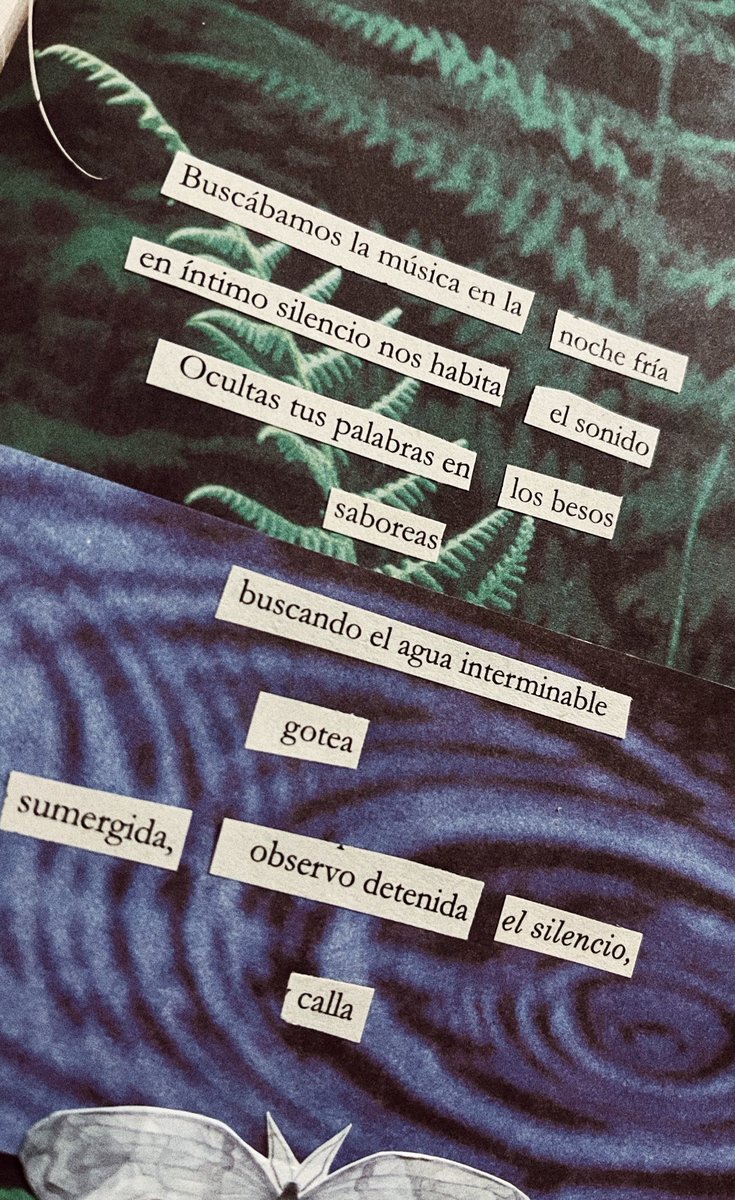 Buscábamos la música en la noche fría
en íntimo silencio nos habita el sonido
Ocultas tus palabras en los besos
saboreas
buscando el agua interminable
gotea
sumergida, observo detenida el silencio,
calla